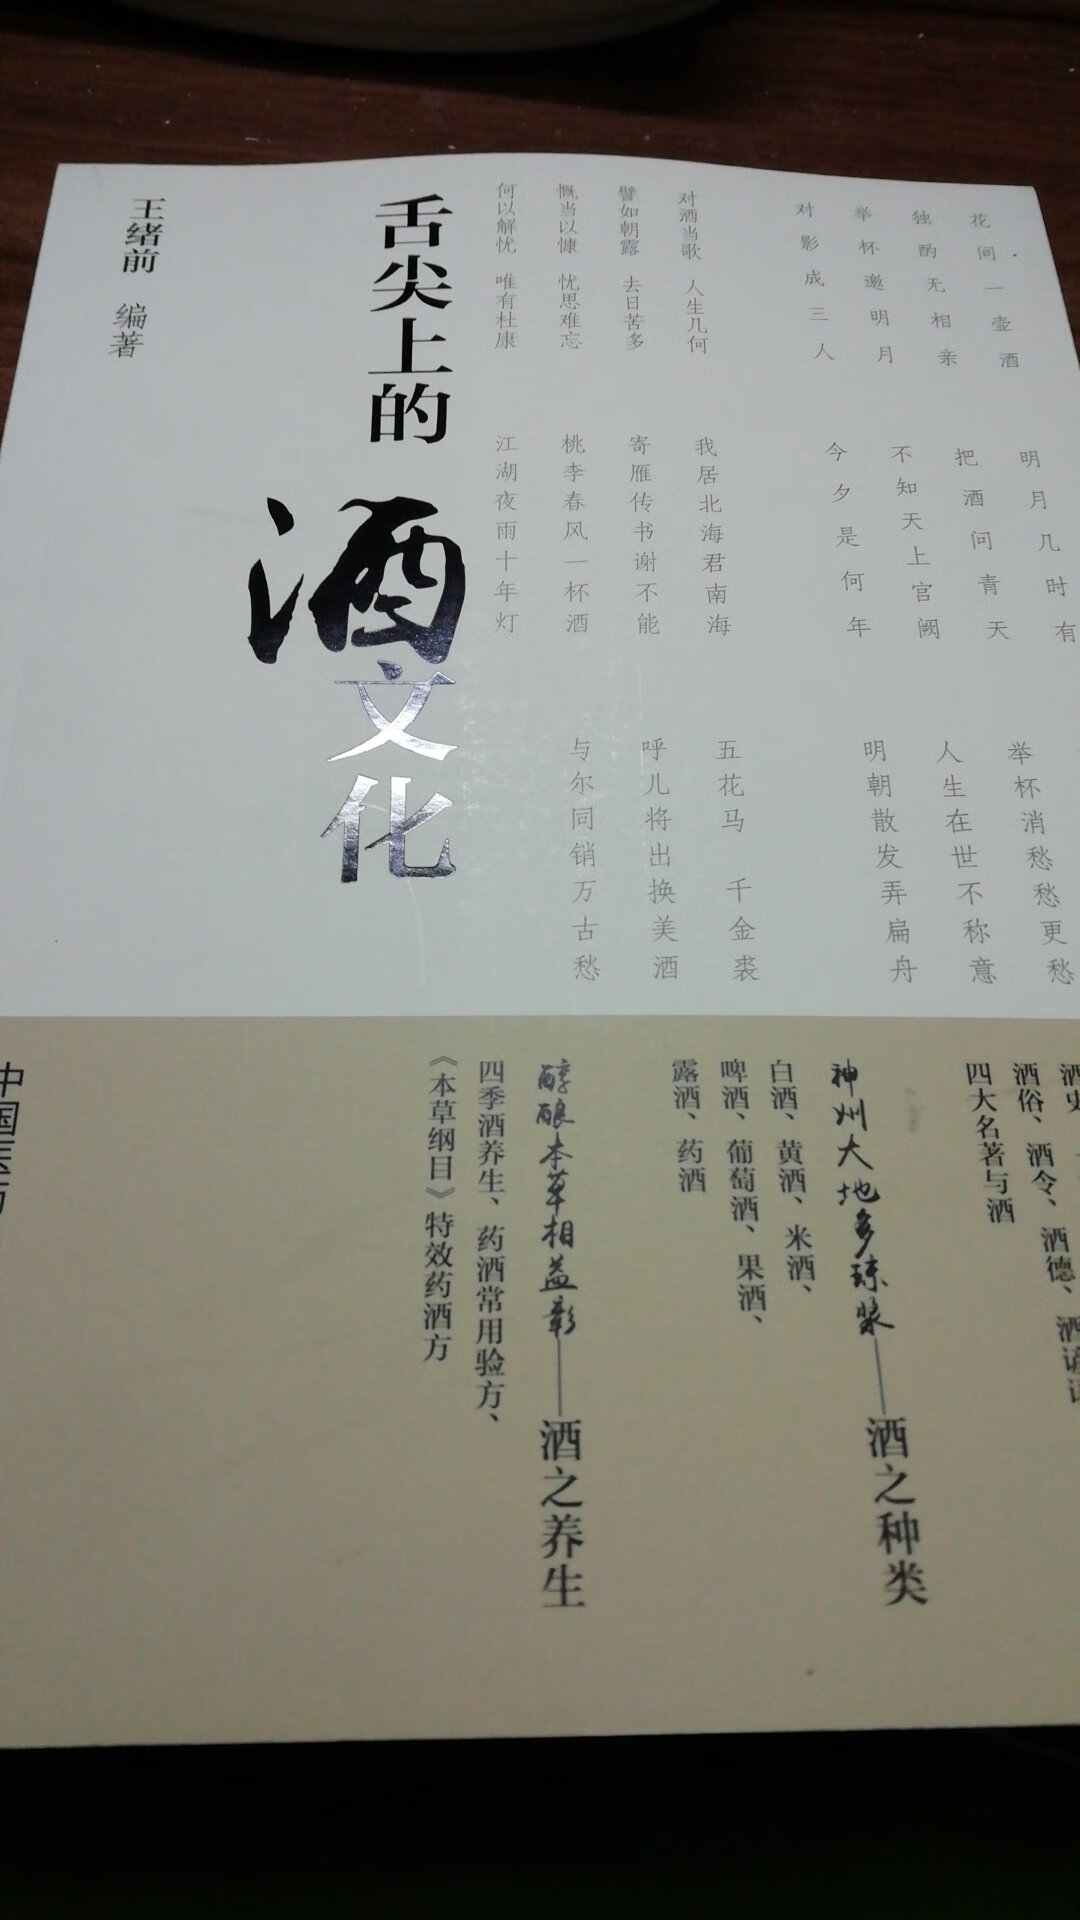 花间一壶酒
独酌无相亲
举杯邀明月
对影成三人
对酒当歌 人生几何
譬如朝露 去日苦多
慨当以慷 忧思难忘
何以解忧 唯有杜康
明月几时有
把酒问青天
不知天上宫阙
今夕是何年
我居北海君南海
寄雁传书谢不能
桃李春风一杯酒
江湖夜雨十年灯
举杯消愁愁更愁
人生在世不称意
明朝散发弄扁舟
五花马 千金裘
呼儿将出换美酒
与尔同销万古愁
舌尖上的
酒
文化
王绪前 编著
酒俗、酒令、酒德、酒
四大名著与酒
神州大地多琼浆——酒之种类
白酒、黄酒、米酒、
啤酒、葡萄酒、果酒、
露酒、药酒
醇酿本草相益彰——酒之养生
四季酒养生、药酒常用验方、
《本草纲目》特效药酒方
中国医药